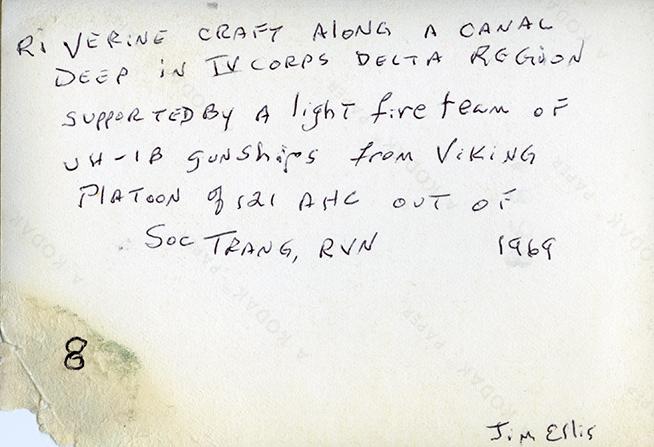 RIVERINE CRAFT ALONG A CANAL
DEEP IN IV CORPS DELTA REGION
SUPPORTED BY A light fire team OF
UH-1B gunships from VIKING
PLATOON of 121 AHC OUT OF
SOC TRANG, RVN 1969
A KODAK PAPER
A KODAK PAPER
A KODAK PAPER
8
Jim Ellis